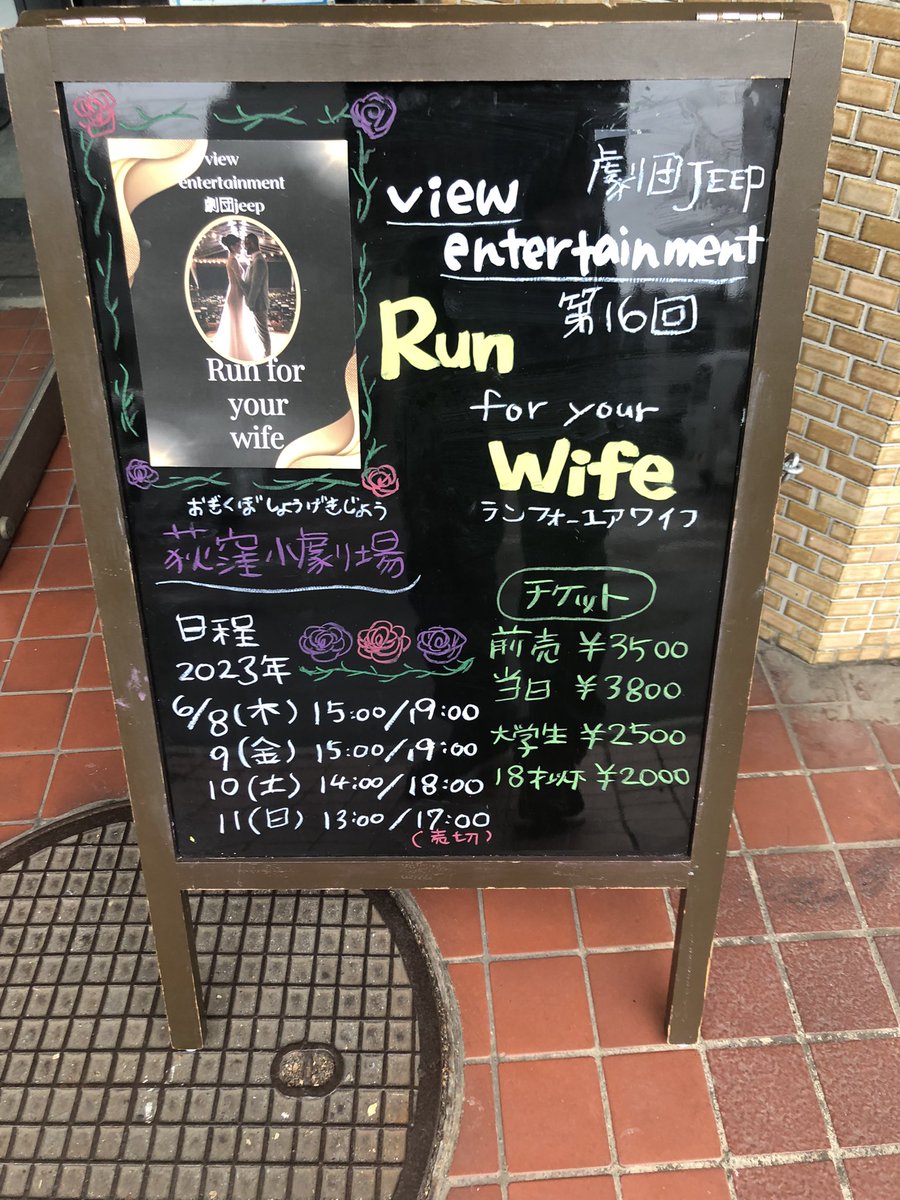 view
entertainment
劇団jeep
Run for
your
wife
劇団JEEP
view
entertainment
第16回
Run
for your
Wife
ランフォーユアワイフ
おぎくぼしょうげきじょう
荻窪小劇場
日程
2023年
6/8(木) 15:00/19:00
9(金) 15:00/19:00
10(土) 14:00/18:00
11(日) 13:00/17:00
(売切)
チケット
前売 ¥3500
当日 ¥3800
大学生 ¥2500
18才以下 ¥2000